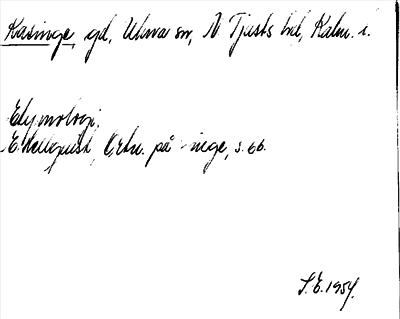 Kasinge, gd, Ukna sn, N. Tjusts hd, Kalm. l.
Etymologi.
E. Hellquist, Ortn. på -inge, s. 66.
S.E. 1954.